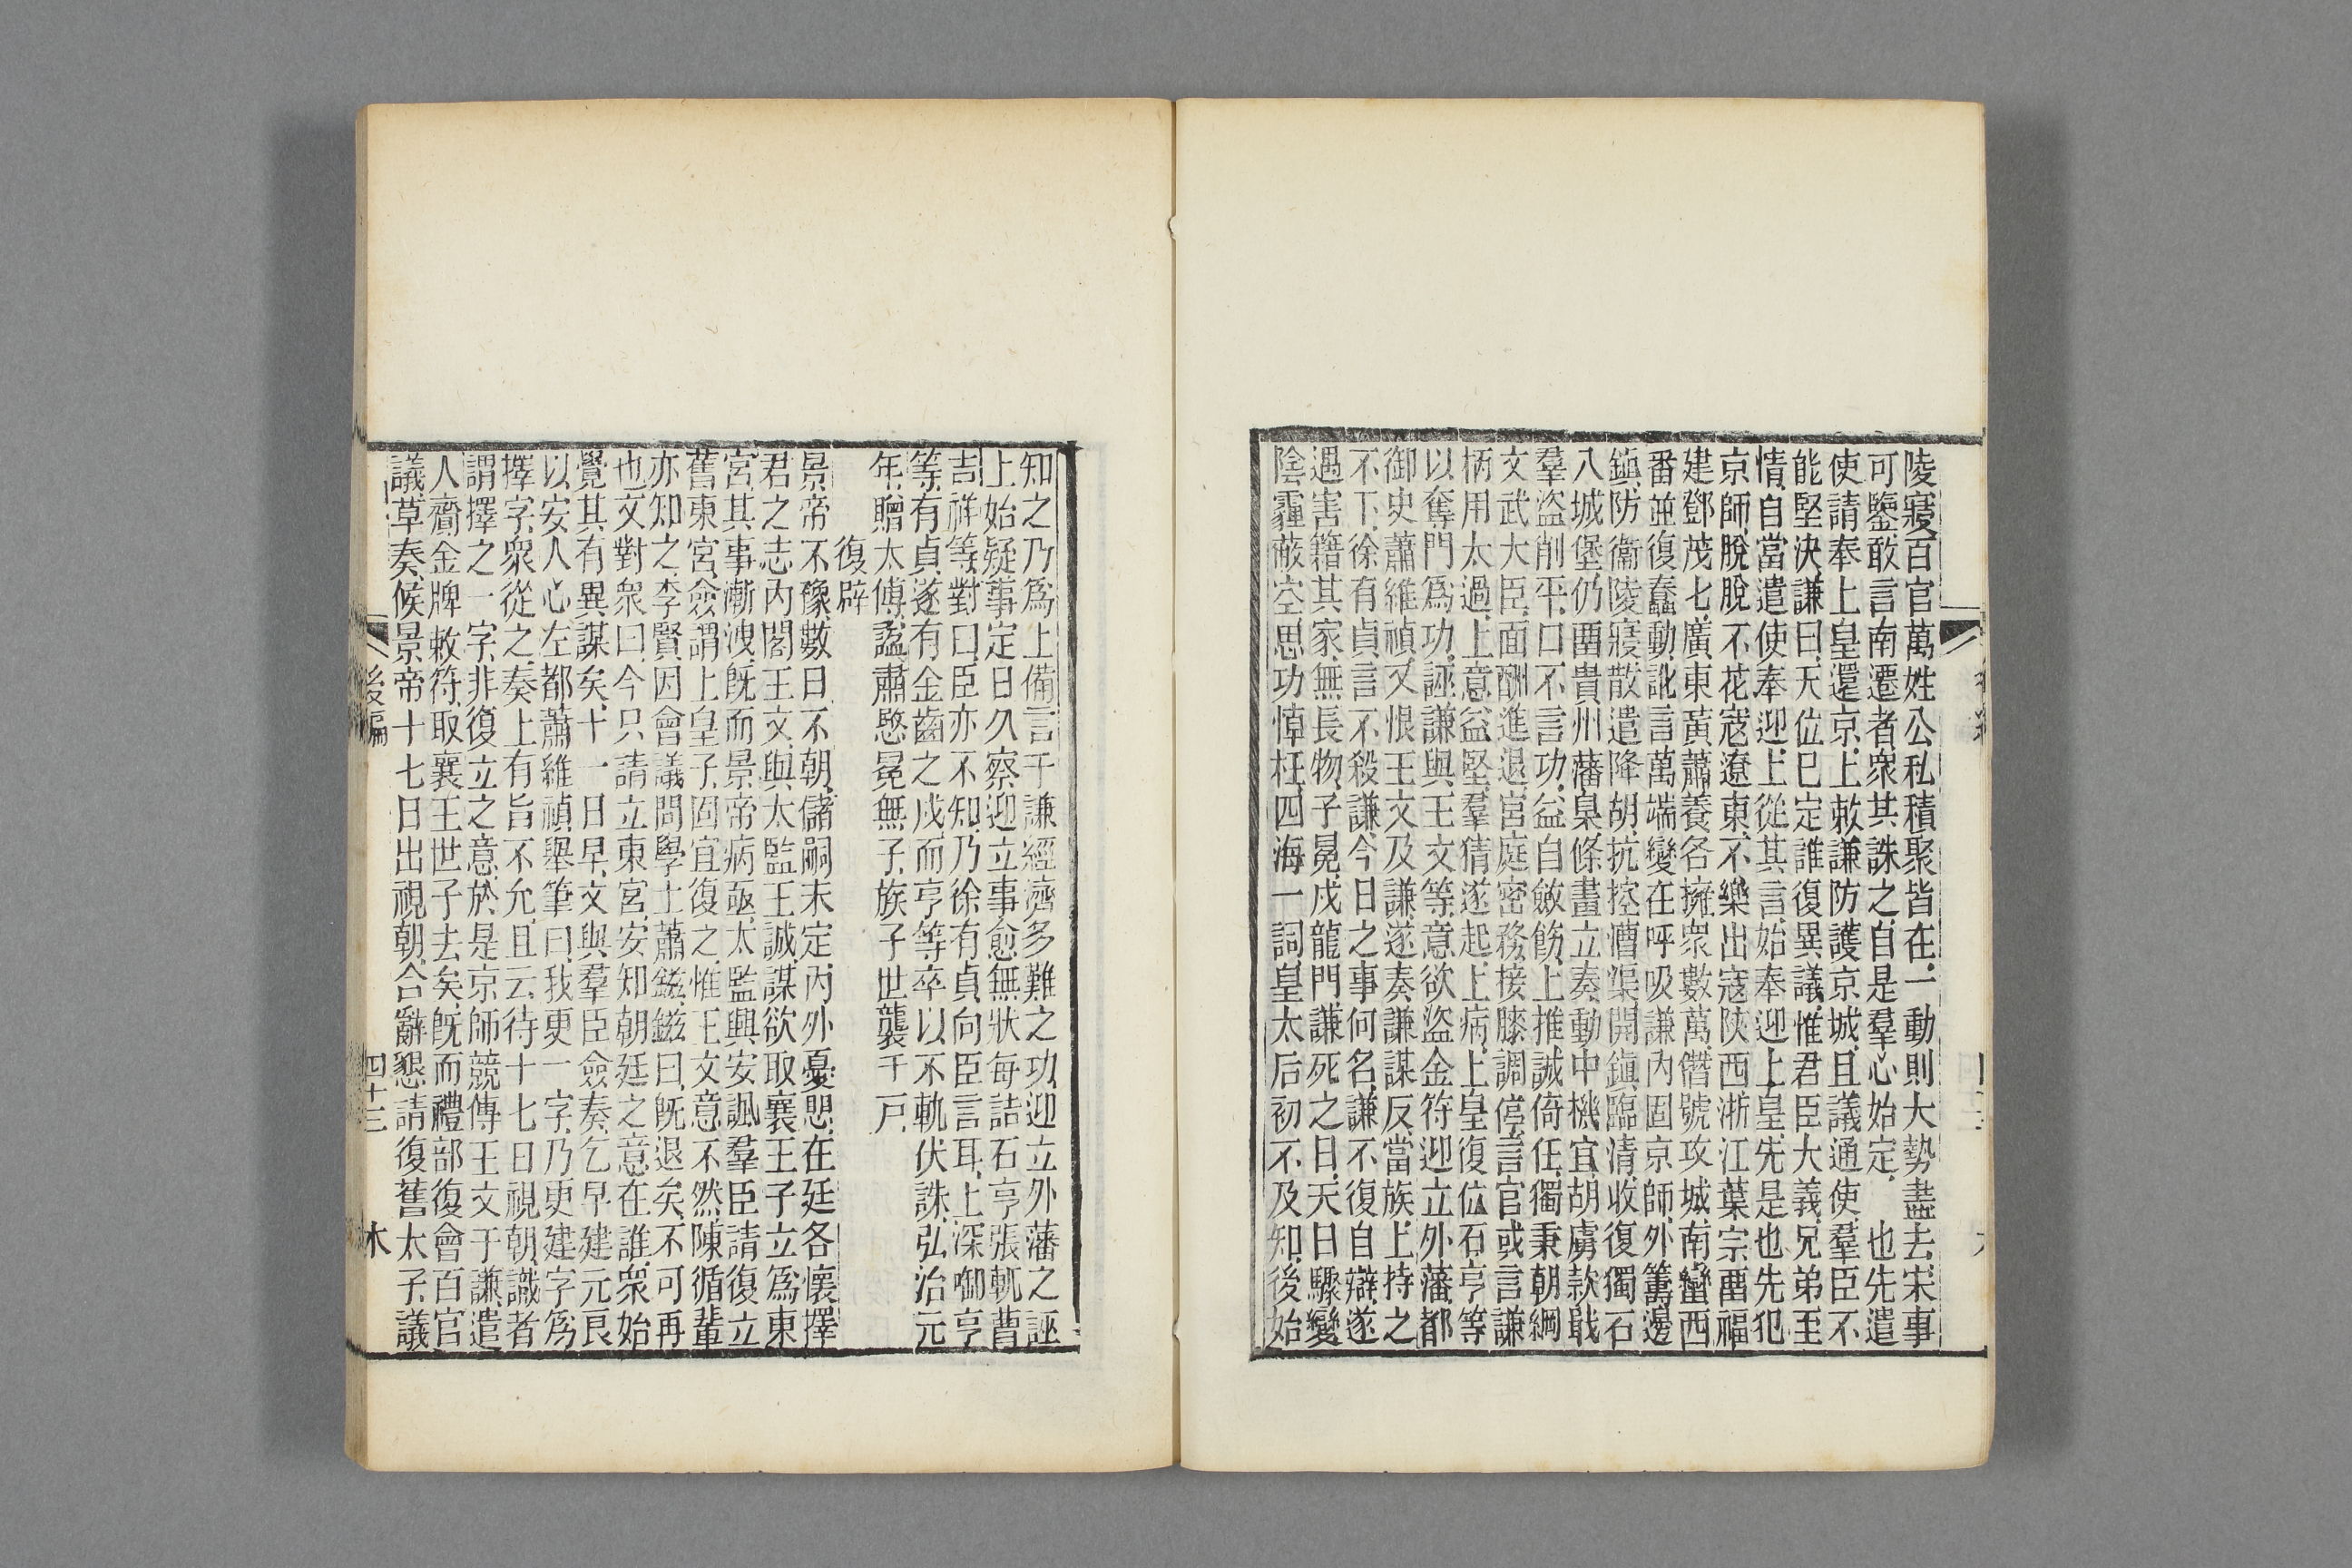 陵寢百官萬姓公私積聚皆在一動則大勢盡去宋事
可鑒敢言南遷者衆共誅之自是羣心始定　也先遣
使請奉上皇還京上敕謙防護京城且議通使羣臣不
能堅決謙曰天位已定誰復異議惟君臣大義兄弟至
情自當遣使奉迎上從其言始奉迎上皇先是也先犯
京師脫脫不花寇遼東不樂出寇陝西浙江葉宗畱福
建鄧茂七廣東黃蕭養各擁衆數萬僭號攻城南蠻西
番並復蠢動訛言萬端變在呼吸謙內固京師外籌邊
鎮防衞陵寢散遣降胡抗控漕渠開鎮臨清收復獨石
八城堡仍畱貴州藩臬條畫立奏動中機宜胡虜款戢
羣盜削平口不言功益自斂飭上推誠倚任獨秉朝綱
文武大臣面酬進退宮庭密務接膝調停言官或言謙
柄用太過上意益堅羣猜遂起上病上皇復位石亨等
以奪門爲功誣謙與王文等意欲盜金符迎立外藩都
御史蕭維禎又恨王文及謙遂奏謙謀反當族上持之
不下徐有貞言不殺謙今日之事何名謙不復自辯遂
遇害籍其家無長物子冕戍龍門謙死之日天日驟變
陰霾蔽空思功悼枉四海一詞皇太后初不及知後始
知之乃爲上備言于謙經濟多難之功迎立外藩之誣
上始疑事定日久察迎立事愈無狀每詰石亨張軏曹
吉祥等對曰臣亦不知乃徐有貞向臣言耳上深啣亨
等有貞遂有金齒之戍而亨等卒以不軌伏誅弘治元
年贈太傅諡肅愍冕無子族子世襲千戸
復辟
景帝不豫數日不朝儲嗣未定內外憂思在廷各懷擇
君之志內閣王文與太監王誠謀欲取襄王子立爲東
宮其事漸洩既而景帝病亟太監興安諷羣臣請復立
舊東宮僉謂上皇子固宜復之惟王文意不然陳循輩
亦知之李賢因會議問學士蕭鎡鎡曰既退矣不可再
也文對衆曰今只請立東宮安知朝廷之意在誰衆始
覺其有異謀矣十一日早文與羣臣僉奏乞早建元良
以安人心左都蕭維禎舉筆曰我更一字乃更建字爲
擇字衆從之奏上有旨不允且云待十七日視朝識者
謂擇之一字非復立之意於是京師競傳王文于謙遣
人齎金牌敕符取襄王世子去矣既而禮部復會百官
議草奏候景帝十七日出視朝合辭懇請復舊太子議
後編　四十三　木